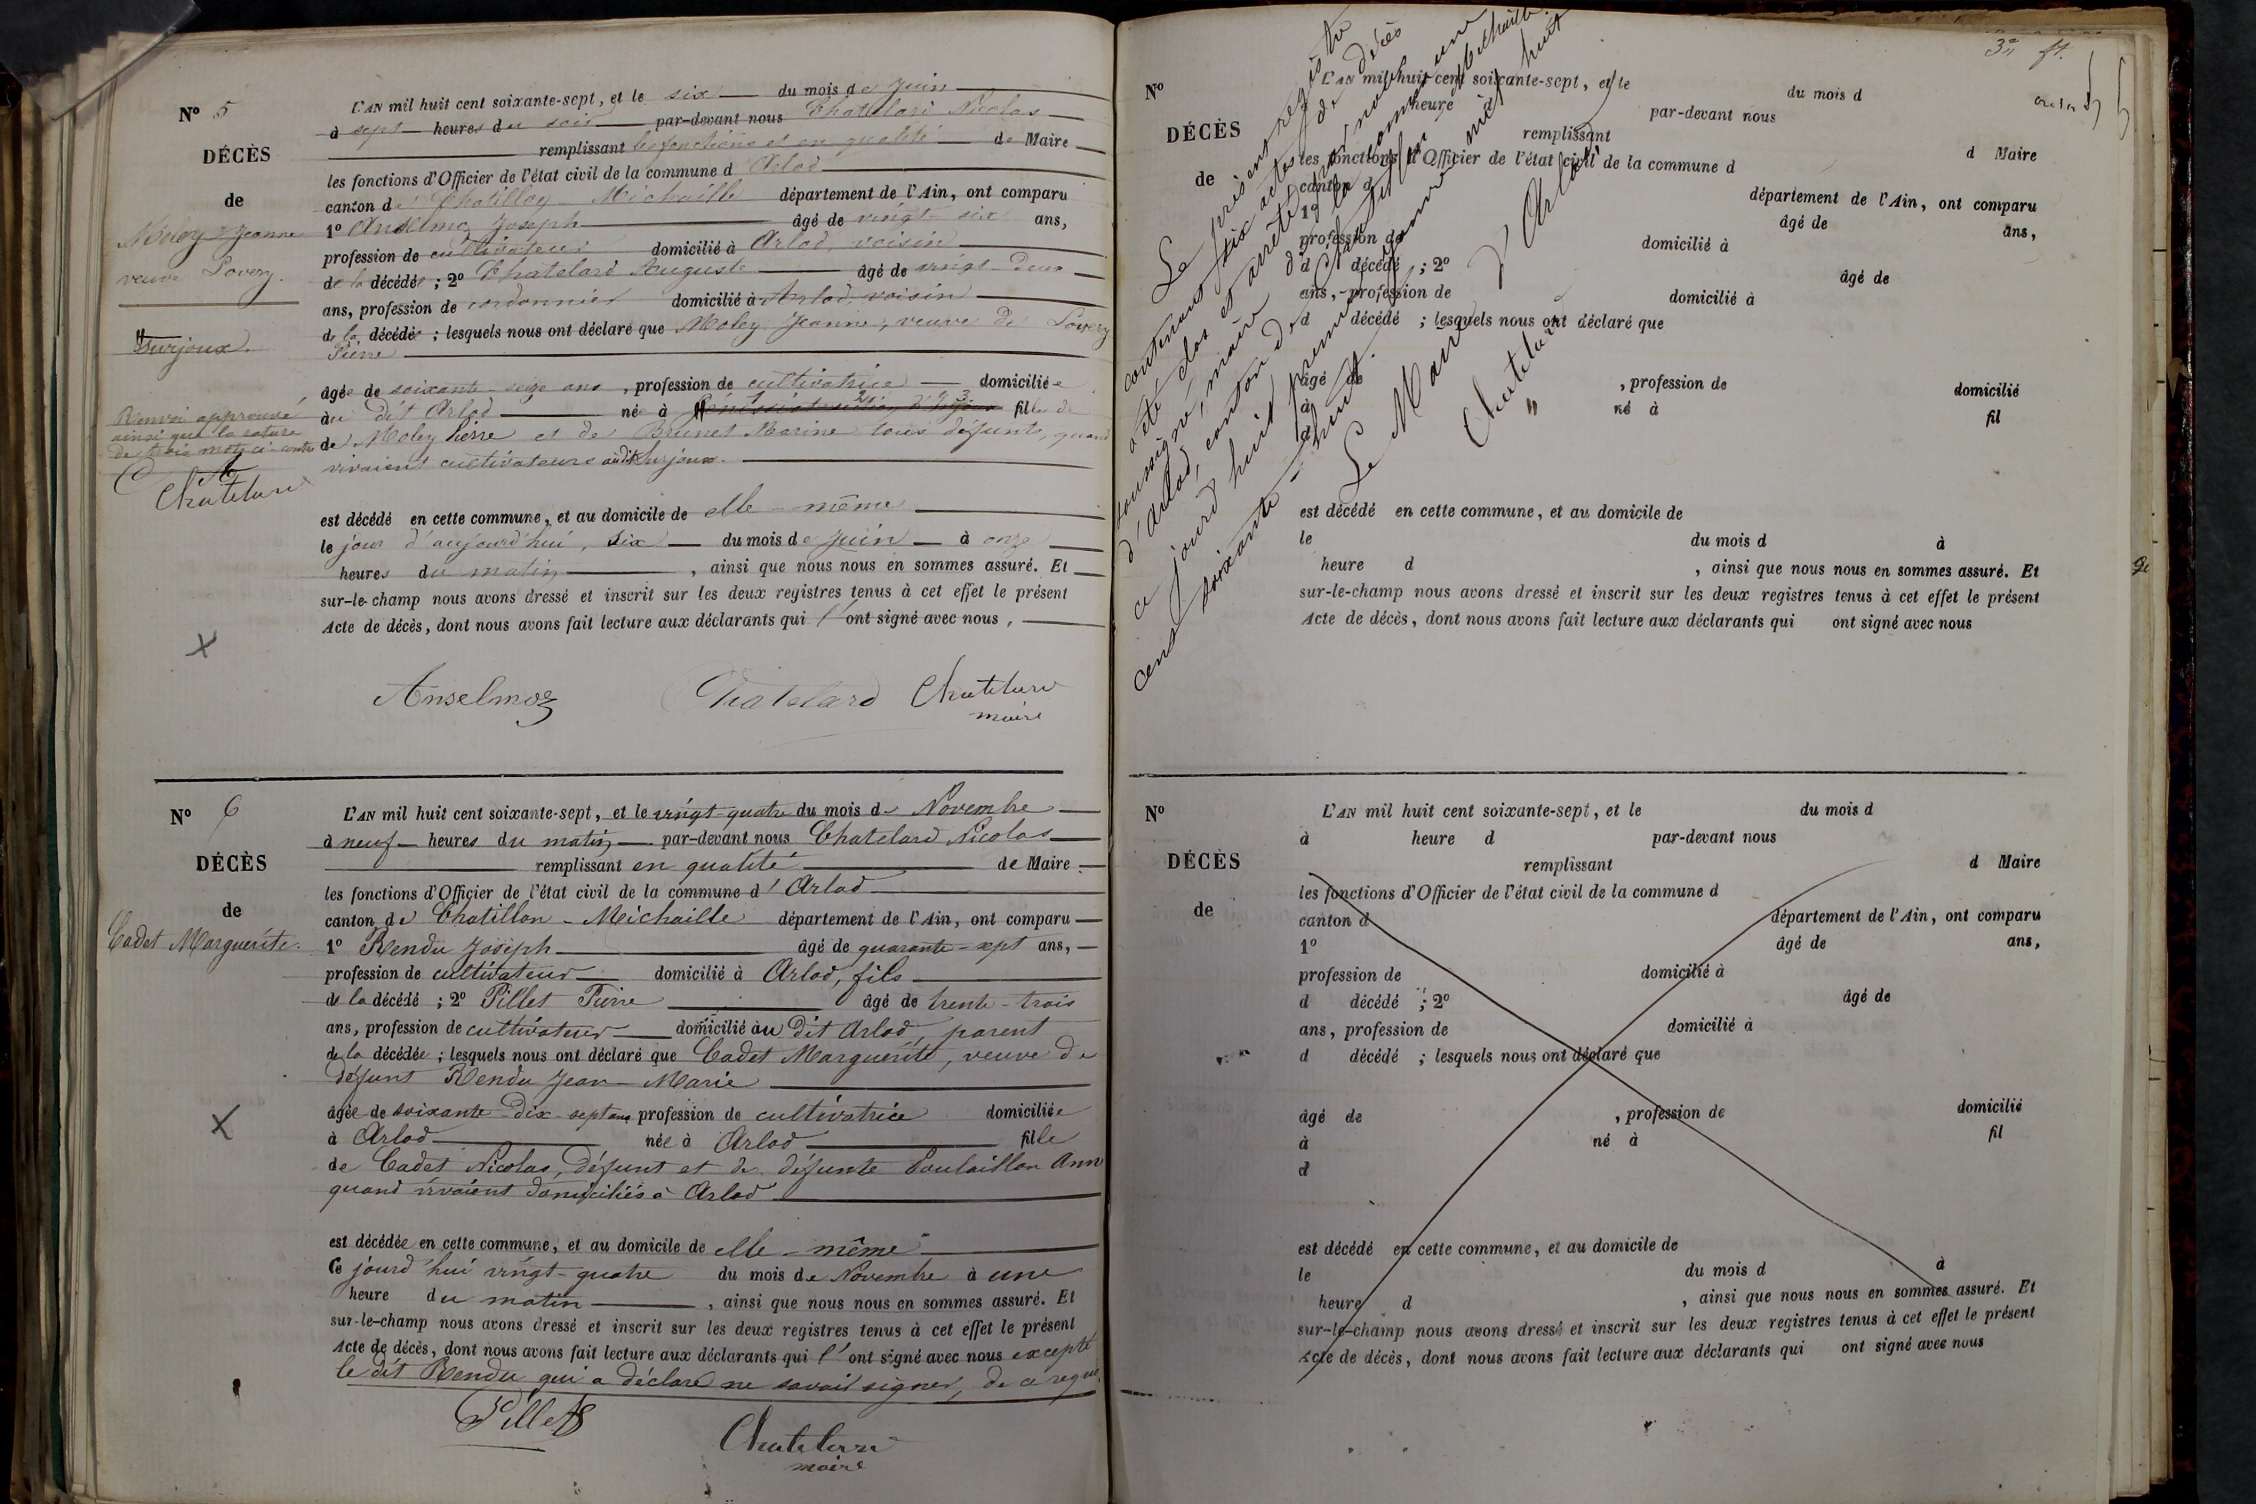 Nº 5
DÉCÈS
de
Moley Jeanne
veuve Lovery.
Surjoux.
Renvoi approuvé
ainsi que la rature
de trois mots ci-contre
Chatelard
L'AN mil huit cent soixante-sept, et le six du mois de Juin
à sept heures du soir par-devant nous Chatelard Nicolas
remplissant les fonctions et en qualité de Maire
les fonctions d'Officier de l'état civil de la commune d'Arlod
canton de Chatillon Michaille département de l'Ain, ont comparu
1º Anselmoz Joseph âgé de vingt-six ans,
profession de cultivateur domicilié à Arlod, voisin
de la décédée ; 2º Chatelard Auguste âgé de vingt-deux
ans, profession de cordonnier domicilié à Arlod, voisin
de la décédée ; lesquels nous ont déclaré que Moley Jeanne, veuve de Lovery
Pierre
âgée de soixante-seize ans, profession de cultivatrice domiciliée
au dit Arlod née à fille de
de Moley Pierre et de Brunet Marine tous défunts, quand
vivaient cultivateurs audit Surjoux.
est décédé en cette commune, et au domicile de elle-même
le jour d'aujourd'hui, six du mois de Juin à onze
heures du matin, ainsi que nous nous en sommes assuré. Et
sur-le-champ nous avons dressé et inscrit sur les deux registres tenus à cet effet le présent
Acte de décès, dont nous avons fait lecture aux déclarants qui l'ont signé avec nous,
Anselmoz Chatelard Chatelard
maire
Nº 6
DÉCÈS
de
Cadet Marguerite.
L'AN mil huit cent soixante-sept, et le vingt-quatre du mois de Novembre
à neuf heures du matin par-devant nous Chatelard Nicolas
remplissant en qualité de Maire
les fonctions d'Officier de l'état civil de la commune d'Arlod
canton de Chatillon-Michaille département de l'Ain, ont comparu
1º Rendu Joseph âgé de quarante-sept ans,
profession de cultivateur domicilié à Arlod, fils
de la décédé ; 2º Pillet Pierre âgé de trente-trois
ans, profession de cultivateur domicilié au dit Arlod, parent
de la décédée ; lesquels nous ont déclaré que Cadet Marguerite, veuve de
défunt Rendu Jean-Marie
âgée de soixante-dix-sept ans profession de cultivatrice domiciliée
à Arlod née à Arlod fille
de Cadet Nicolas, défunt et de défunte
quand vivaient domiciliés à Arlod
est décédée en cette commune, et au domicile de elle-même
Ce jourd'hui vingt-quatre du mois de Novembre à une
heure du matin, ainsi que nous nous en sommes assuré. Et
sur-le-champ nous avons dressé et inscrit sur les deux registres tenus à cet effet le présent
Acte de décès, dont nous avons fait lecture aux déclarants qui l'ont signé avec nous excepté
le dit Rendu qui a déclaré ne savoir signer, de ce requis.
Pillet
Chatelard
maire
Le présent registre
contenant six actes de décès
a été clos et arrêté par nous
soussigné, maire de la commune
d'Arlod, canton de Chatillon-Michaille
ce jourd'hui premier janvier mil huit
cent soixante-huit.
Le Maire d'Arlod
Chatelard
Nº
DÉCÈS
de
L'AN mil huit cent soixante-sept, et le du mois d
heure par-devant nous
remplissant d Maire
les fonctions d'Officier de l'état civil de la commune d
canton d département de l'Ain, ont comparu
1º âgé de ans,
profession de domicilié à
d décédé ; 2º âgé de
ans, profession de domicilié à
d décédé ; lesquels nous ont déclaré que
âgé de , profession de domicilié
à né à fil
d
est décédé en cette commune, et au domicile de
le du mois d à
heure d , ainsi que nous nous en sommes assuré. Et
sur-le-champ nous avons dressé et inscrit sur les deux registres tenus à cet effet le présent
Acte de décès, dont nous avons fait lecture aux déclarants qui ont signé avec nous
Nº
DÉCÈS
de
L'AN mil huit cent soixante-sept, et le du mois d
à heure d par-devant nous
remplissant d Maire
les fonctions d'Officier de l'état civil de la commune d
canton d département de l'Ain, ont comparu
1º âgé de ans,
profession de domicilié à
d décédé ; 2º âgé de
ans, profession de domicilié à
d décédé ; lesquels nous ont déclaré que
âgé de , profession de domicilié
à né à fil
d
est décédé en cette commune, et au domicile de
le du mois d à
heure d , ainsi que nous nous en sommes assuré. Et
sur-le-champ nous avons dressé et inscrit sur les deux registres tenus à cet effet le présent
Acte de décès, dont nous avons fait lecture aux déclarants qui ont signé avec nous